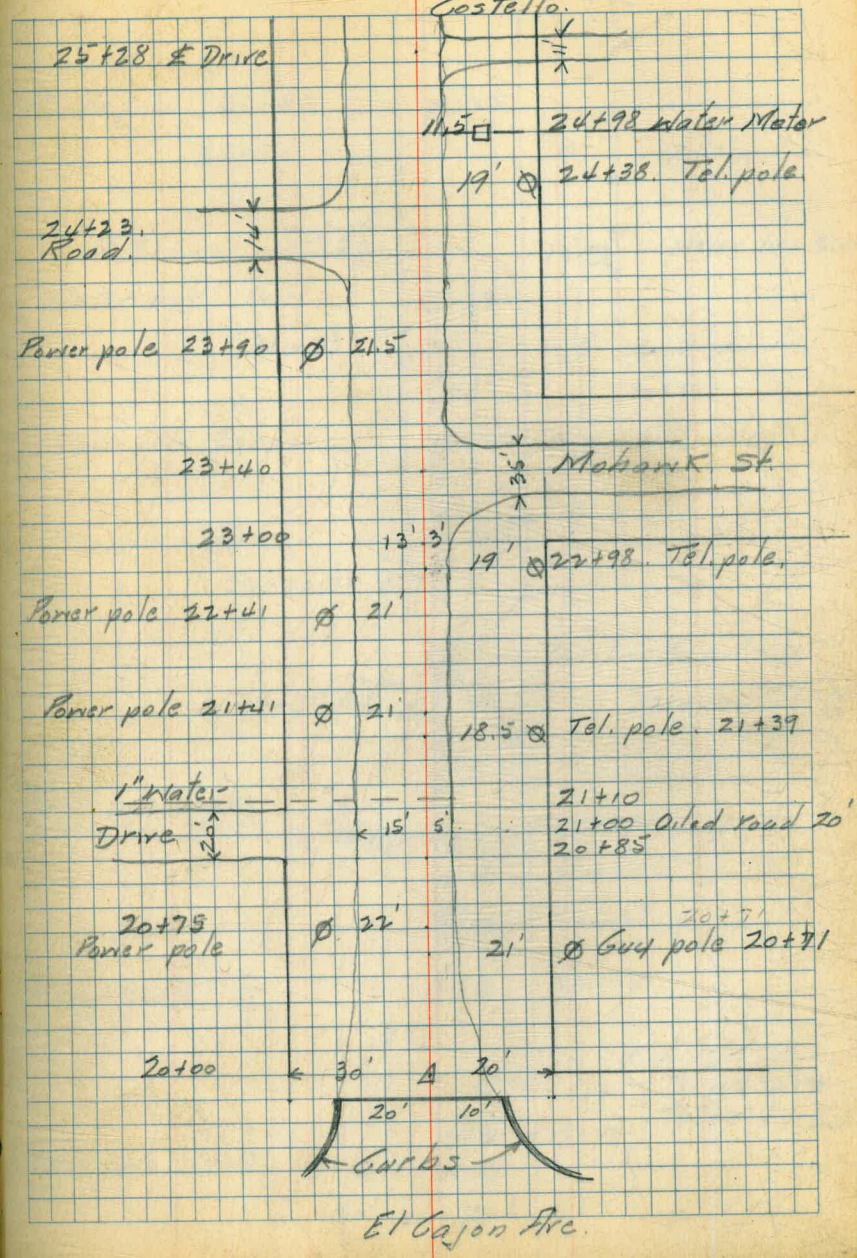 Costello.
25+28 ⅊ Drive
11'
11.5 24+98 Water Meter
19' 24+38. Tel. pole.
24+23.
Road.
14'
Power pole 23+90 Ø 21.5
23+40
35'
Mohawk St.
23+00 13' 3'
19' Ø 22+98. Tel. pole.
Power pole 22+41 Ø 21'
Power pole 21+41 Ø 21'
18.5 Ø Tel. pole. 21+39
1" Water
21+10
Drive 20' 15' 5' 21+00 Oiled road 20'
20+85
20+75 Ø 22'
Power pole
20+71
21' Ø Guy pole 20+71
20+00 30' Δ 20'
20' 10'
Curbs
El Cajon Ave.